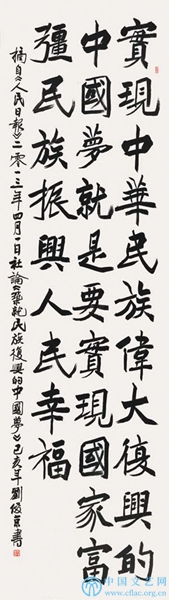 實現中華民族偉大復興的
中國夢就是要實現國家富
彊民族振興人民幸福
摘自《人民日報》二零一三年四月一日社論《民族復興的中國夢》己亥年劉京書
中国文艺网
www.cflac.org.cn